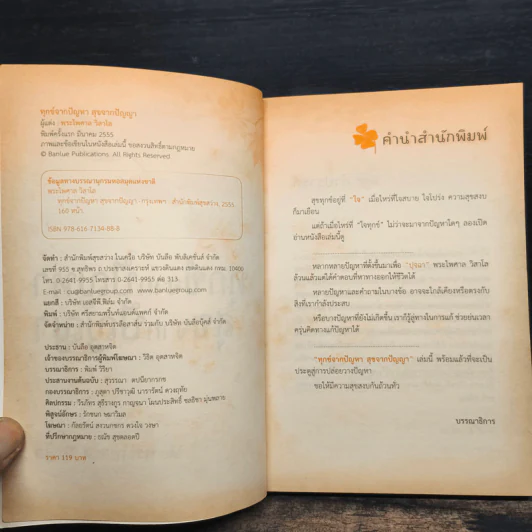 ทุกข์จากปัญหา สุขจากปัญญา
ผู้แต่ง : พระไพศาล วิสาโล
พิมพ์ครั้งแรก มีนาคม 2555
ภาพและข้อเขียนในหนังสือเล่มนี้ ขอสงวนสิทธิ์ตามกฎหมาย
© Banlue Publications. All Rights Reserved
ข้อมูลทางบรรณานุกรมหอสมุดแห่งชาติ
พระไพศาล วิสาโล
ทุกข์จากปัญหา สุขจากปัญญา.- กรุงเทพฯ : สำนักพิมพ์สุขสว่าง, 2555.
160 หน้า.
ISBN 978-616-7134-88-8
จัดทำ : สำนักพิมพ์สุขสว่าง ในเครือ บริษัท บันลือ พับลิเคชั่นส์ จำกัด
เลขที่ 955 ซ.สุทธิพร ถ.ประชาสงเคราะห์ แขวงดินแดง เขตดินแดง กทม. 10400
โทร. 0-2641-9955 โทรสาร 0-2641-9955 ต่อ 313
E-mail : cu@banluegroup.com / www.banluegroup.com
แยกสี : บริษัท เอสจีพี.ฟิล์ม จำกัด
พิมพ์ : บริษัท ศรีสยามพริ้นท์แอนด์แพคก์ จำกัด
จัดจำหน่าย : สำนักพิมพ์บรรลือสาส์น ร่วมกับ บริษัท บันลือบุ๊คส์ จำกัด
ประธาน : บันลือ อุตสาหจิต
เจ้าของบรรณาธิการผู้พิมพ์โฆษณา : วิธิต อุตสาหจิต
บรรณาธิการ : พิมพ์ วิริยา
ประสานงานต้นฉบับ : สุวรรณา
กองบรรณาธิการ : ปรีชาวุฒิ นารารัตน์ ดวงฤทัย
ศิลปกรรม : วีรภัทร สุธีรางกูร กาญจนา โฉนประสิทธิ์ ชลธิชา
พิสูจน์อักษร : รักชนก
โฆษณา : กัลยรัตน์ สงวนกชกร ดวงใจ วงษา
ที่ปรึกษากฎหมาย : ธณัร สุขตลอดปี
ราคา 119 บาท
คำนำสำนักพิมพ์
สุขทุกข์อยู่ที่ "ใจ" เมื่อไหร่ที่ใจสบาย ใจโปร่ง ความสุขสงบ
ก็มาเยือน
แต่ถ้าเมื่อไหร่ที่ "ใจทุกข์" ไม่ว่าจะมาจากปัญหาใดๆ ลองเปิด
อ่านหนังสือเล่มนี้ดู
หลากหลายปัญหาที่ตั้งขึ้นมาเพื่อ "ปุจฉา" พระไพศาล วิสาโล
ล้วนแล้วแต่ได้คำตอบที่หาทางออกให้ชีวิตได้
หลายปัญหาและคำถามในบางข้อ อาจจะใกล้เคียงหรือตรงกับ
สิ่งที่เรากำลังประสบ
หรือบางปัญหาที่ยังไม่เกิดขึ้น เราก็รู้สู่ทางในการแก้ ช่วยย่นเวลา
ครุ่นคิดทางแก้ปัญหาได้
"ทุกข์จากปัญหา สุขจากปัญญา" เล่มนี้ พร้อมแล้วที่จะเป็น
ประตูสู่การปล่อยวางปัญหา
ขอให้มีความสุขสงบกันถ้วนทั่ว
บรรณาธิการ